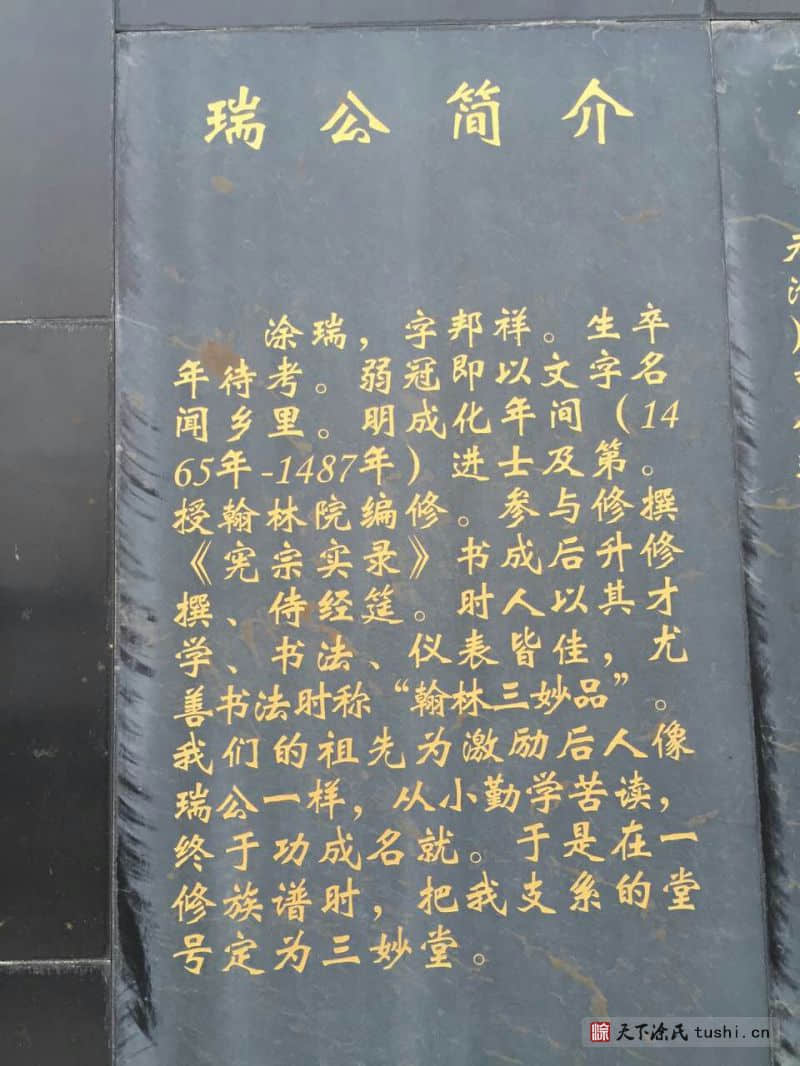 瑞公简介
涂瑞，字邦祥。生卒
年待考。弱冠即以文字名
闻乡里。明成化年间（14
65年-1487年）进士及第。
授翰林院编修。参与修撰
《宪宗实录》书成后升修
撰、侍经筵。时人以其才
学、书法、仪表皆佳，尤
善书法时称“翰林三妙品”。
我们的祖先为激励后人像
瑞公一样，从小勤学苦读，
终于功成名就。于是在一
修族谱时，把我支系的堂
号定为三妙堂。
天下涂氏 tushi.cn